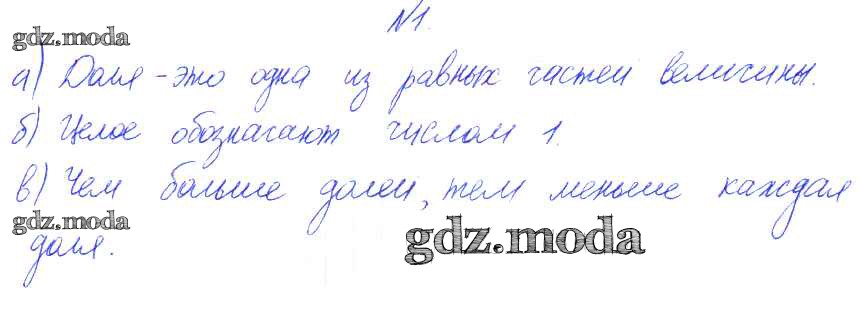 №1.
gdz.moda
а) Доля - это одна из равных частей величины.
б) Целое обозначают числом 1.
в) Чем больше долей, тем меньше каждая
gdz.moda
доля.
gdz.moda